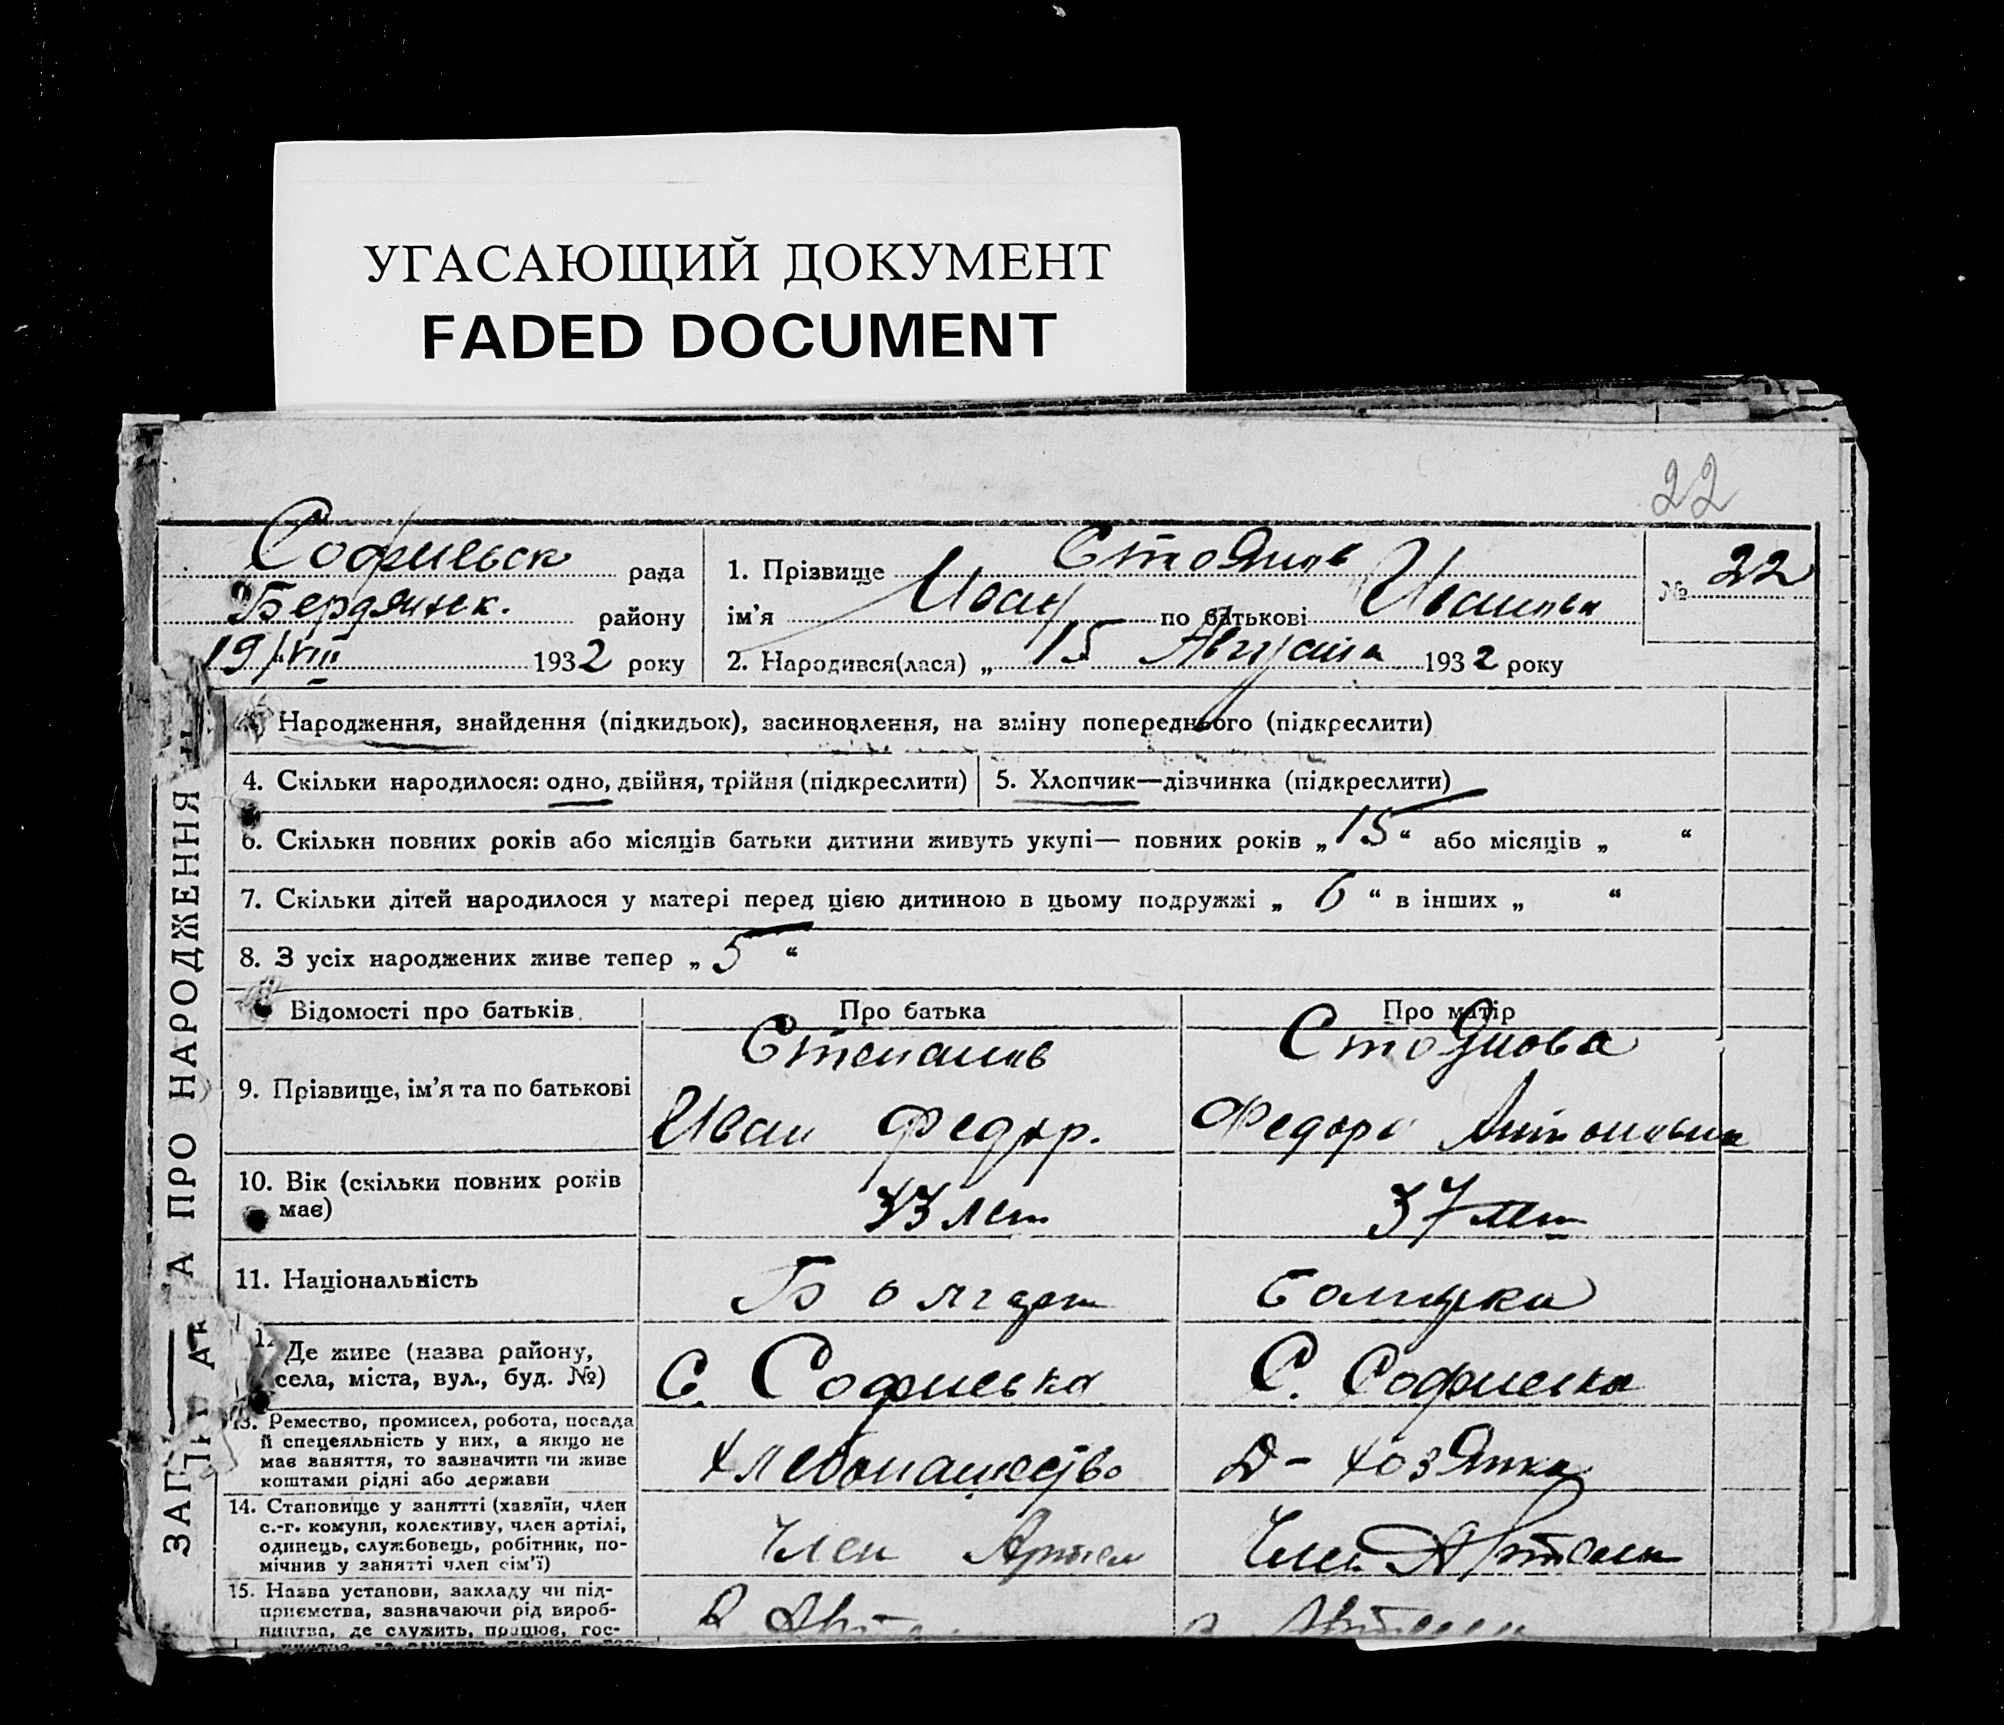 УГАСАЮЩИЙ ДОКУМЕНТ
FADED DOCUMENT
22
Софиевск рада
Бердянск. району
19/VIII 1932 року
1. Прізвище Стоянов
ім'я Иван по батькові Иванов
№ 22
2. Народився(лася) „ 15 Августа 1932 року
Народження, знайдення (підкидьок), засиновлення, на зміну попереднього (підкреслити)
4. Скільки народилося: одно, двійня, трійня (підкреслити)
5. Хлопчик—дівчинка (підкреслити)
6. Скільки повних років або місяців батьки дитини живуть укупі— повних років „15“ або місяців „ “
7. Скільки дітей народилося у матері перед цією дитиною в цьому подружжі „ 6 “ в інших „ “
8. З усіх народжених живе тепер „ 5 “
Відомості про батьків
Про батька
Про матір
9. Прізвище, ім'я та по батькові
Стоянова
Иван Федор.
Федора
10. Вік (скільки повних років
має)
33 лет
37 лет
11. Національність
Болгар
Болгарка
12. Де живе (назва району,
села, міста, вул., буд. №)
С. Софиевка
С. Софиевка
13. Ремество, промисел, робота, посада
й спецеяльність у них, а якщо не
має заняття, то зазначити чи живе
коштами рідні або держави
Хлебопашество
Д- хозяйка
14. Становище у занятті (хазяїн, член
с.-г. комуни, колективу, член артілі,
одинець, службовець, робітник, по-
мічнив у занятті член сім'ї)
Член Артел
Член Артели
15. Назва установи, закладу чи під-
приємства, зазначаючи рід вироб-
ництва, де служить, працює, гос-
ЗАПИ
ПРО НАРОДЖЕННЯ